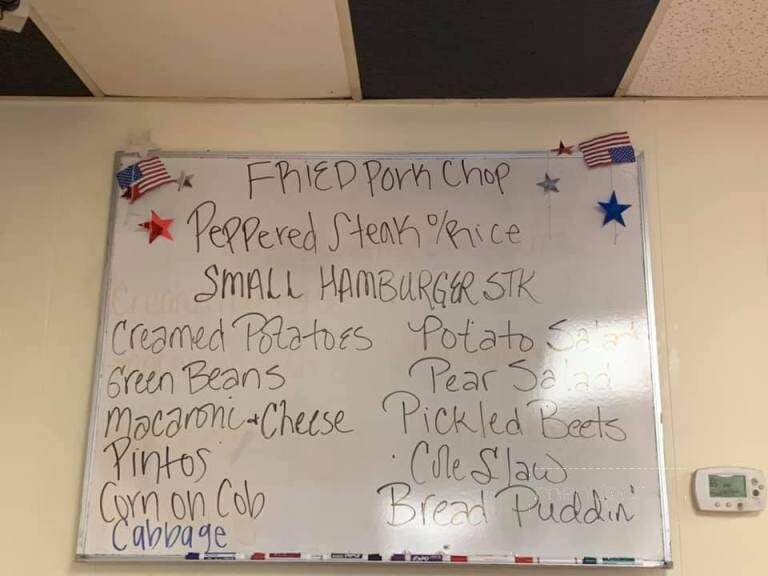 FRIED Pork Chop
Peppered Steak o/Rice
SMALL HAMBURGER STK
Creamed Potatoes
Green Beans
Macaroni + Cheese
Pintos
Corn on Cob
Cabbage
Potato Salad
Pear Salad
Pickled Beets
Cole Slaw
Bread Puddin'